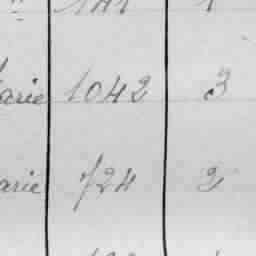 arie 1042 3
arie 724 2